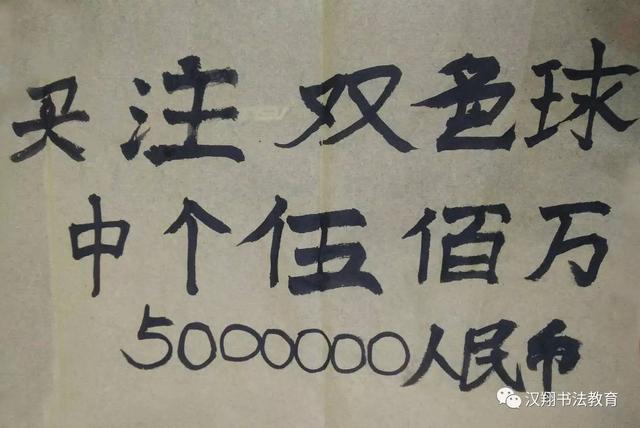 买注双色球
中个伍佰万
5000000人民币
汉翔书法教育